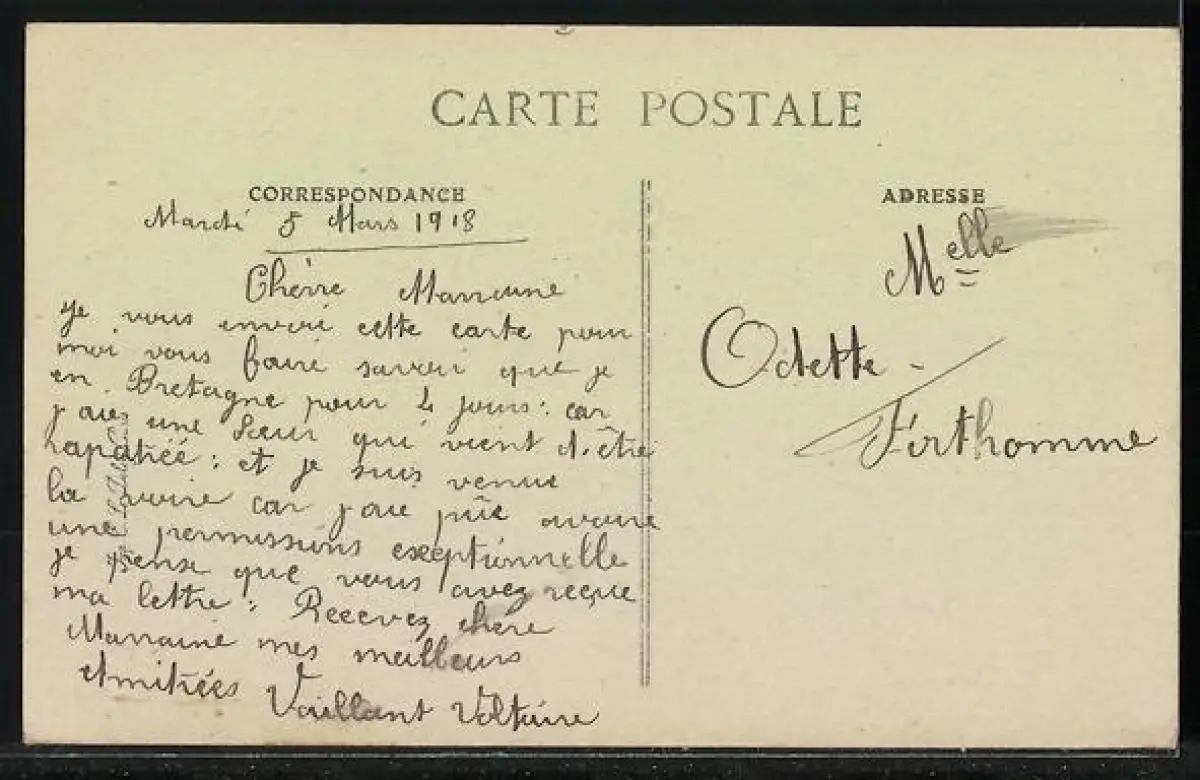 CARTE POSTALE
CORRESPONDANCE
Mardi 5 Mars 1918
Cherre Marraine
Je vous envoi cette carte pour
moi vous faire savoir que je
en Bretagne pour 4 jours: car
j'aiez une Sœur qui vient d'être
rapatiée: et je suis venue
la voire car j'aie pûe avoire
une permissions exeptionnelle
je pense que vous avez reçue
ma lettre: Recevez chère
Marraine mes meilleurs
Amitiées Vaillant Voltaire
ADRESSE
Melle
Odette -
Firthomme